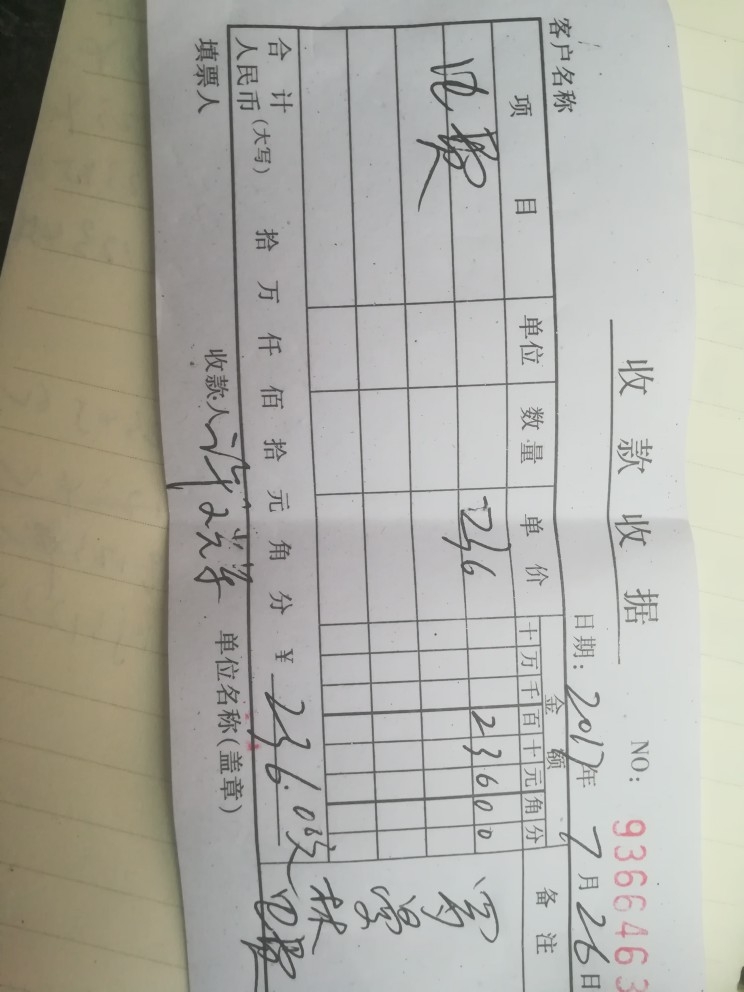 收款收据
NO: 9366463
客户名称 日期: 2017年 7月 26日
项目 单位 数量 单价 金额 备注
十 万 千 百 十 元 角 分
电费 236 2 3 6 0 0
电费
合计
人民币(大写) 拾 万 仟 佰 拾 元 角 分 ¥ 236.0
填票人 收款人 单位名称(盖章)